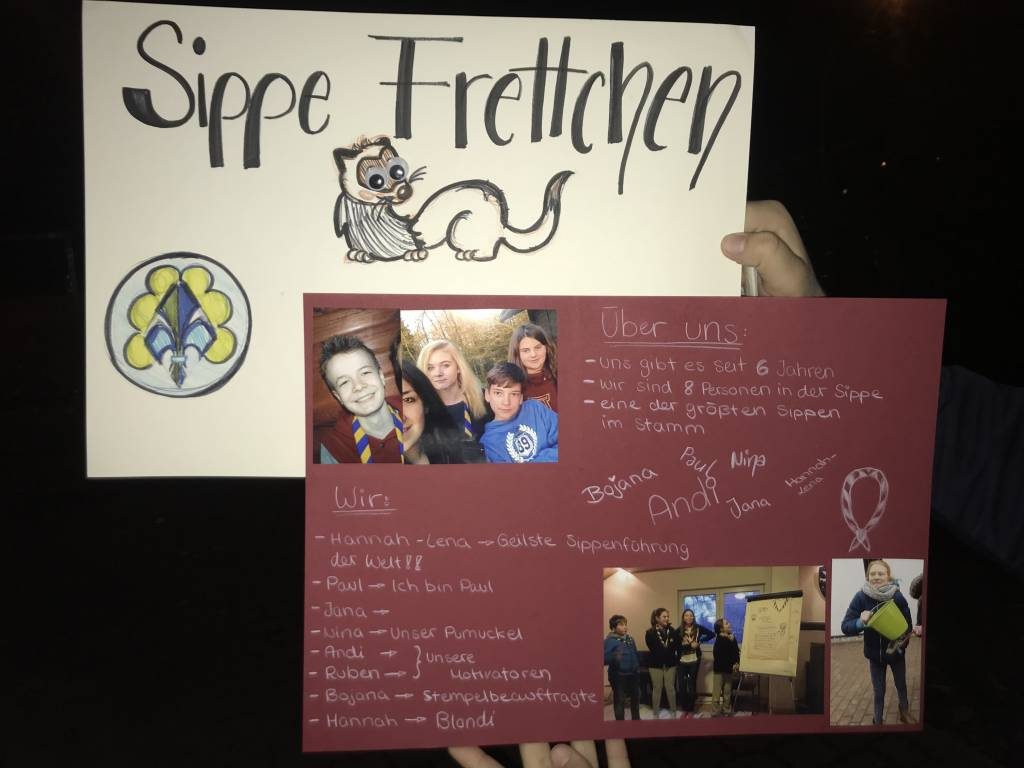 Sippe Frettchen
Über uns:
- uns gibt es seit 6 Jahren
- wir sind 8 Personen in der Sippe
- eine der größten Sippen
im Stamm
Bojana
Paul
Nina
Andi
Jana
Hannah-
Lena
Wir:
- Hannah-Lena → Geilste Sippenführung
der Welt!!
- Paul → Ich bin Paul
- Jana →
- Nina → Unser Pumuckel
- Andi → } Unsere
- Ruben → Motivatoren
- Bojana → Stempelbeauftragte
- Hannah → Blondi
89